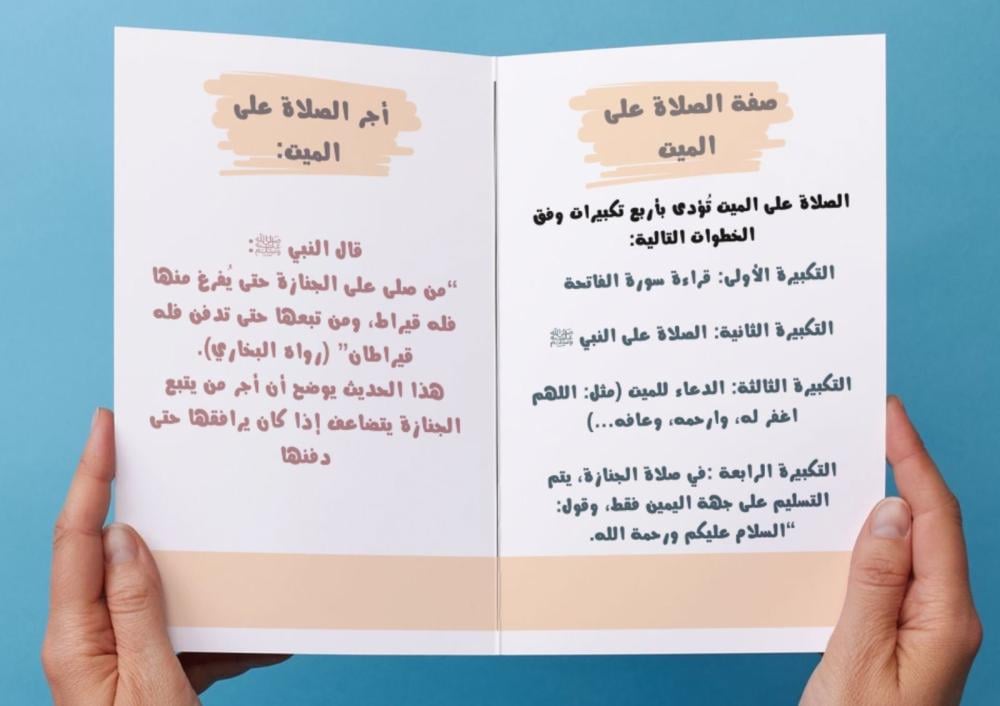 صفة الصلاة على
الميت
الصلاة على الميت تُؤدى بأربع تكبيرات وفق
الخطوات التالية:
التكبيرة الأولى: قراءة سورة الفاتحة
التكبيرة الثانية: الصلاة على النبي ﷺ
التكبيرة الثالثة: الدعاء للميت (مثل: اللهم
اغفر له، وارحمه، وعافه...)
التكبيرة الرابعة :في صلاة الجنازة، يتم
التسليم على جهة اليمين فقط، وقول:
“السلام عليكم ورحمة الله.
أجر الصلاة على
الميت:
قال النبي ﷺ:
“من صلى على الجنازة حتى يُفرغ منها
فله قيراط، ومن تبعها حتى تدفن فله
قيراطان” (رواه البخاري).
هذا الحديث يوضح أن أجر من يتبع
الجنازة يتضاعف إذا كان يرافقها حتى
دفنها